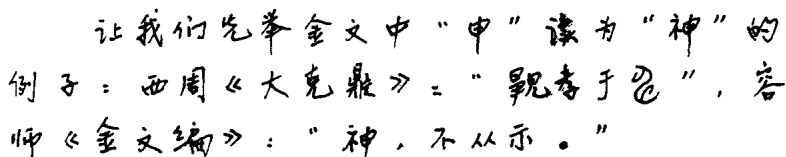 让我们先举金文中“申”读为“神”的
例子：西周《大克鼎》：“顈孝于申”，容
师《金文编》：“神，不从示。”